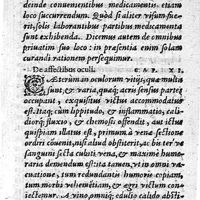 deinde conuenientibus medicamentis. etiam
loco succurrendum. Quòd si aliter visum fue-
rit, solis laborantibus partibus medicamenta
sunt exhibenda. Dicemus autem de omnibus
priuatim suo loco: in præsentia enim solam
curandi rationem persequimur.
De affectibus oculi. CAP. XI.
CÆterùm oculorum vitijs, quæ multa
sunt, & varia, quæq; acris sensus partes
occupant, exquisitus victus accommodatus
est. Itaq; cùm lippitudo, & inflammatio,
fluxio, & chemosis offendit, aut ictus
quispiam illatus est, primùm à vena sectione
ordiri conuenit, nisi aliud obstiterit, ac biter ve
sanguinis secta cubiti vena, & maximè hume-
raria deducendum est: ita tamen, vt in omni
cuatione, tum redundantis humoris copiam,
tum morbi vehementiam, & ægri victum con-
iectemur. A vino, omniq; edulio calido absti-